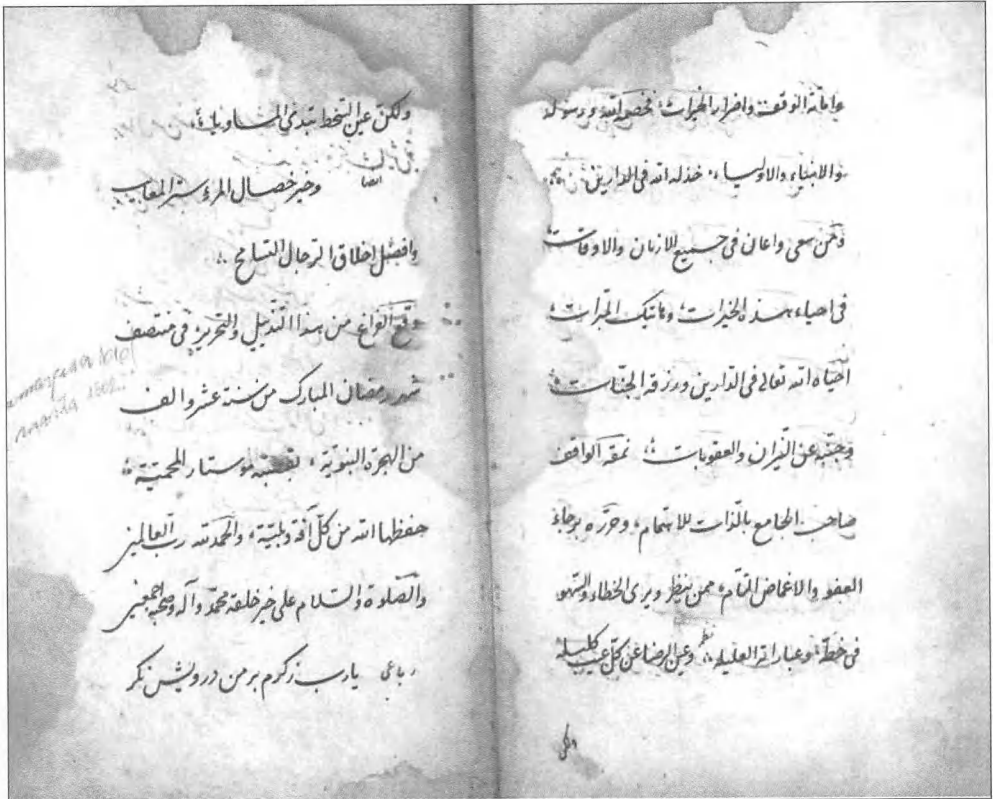 واماتة الوقف واضرار الخيرات فخصمه الله ورسوله
والانبياء والاولياء خذله الله فى الدارين
ومن سعى واعان فى جميع الازمان والاوقات
فى احياء هذه الخيرات وهاتيك المبرات
احياه الله تعالى فى الدارين ورزقه الجنات
وجنبه عن النيران والعقوبات نمقه الواقف
صاحب الجامع بالذات للاهتمام وحرره برجاء
العفو والاغماض التام ممن ينظر ويرى الخطاء والسهو
فى خطه وعباراته العليله نظم وعين الرضا عن كل عيب كليلة
ولكن
ولكن عين السخط تبدى المساويا
ايضا وخير خصال المرء ستر المعايب
وافضل اخلاق الرجال التسامح
وقع الفراغ من هذا التذييل والتحرير فى منتصف
شهر رمضان المبارك من سنة عشر والف
من الهجرة النبوية بقصبة موستار المحمية
حفظها الله من كل آفة وبلية والحمد لله رب العالمين
والصلوة والسلام على خير خلقه محمد وآله وصحبه اجمعين
رباعى يارب زكرم بر من درويش نكر